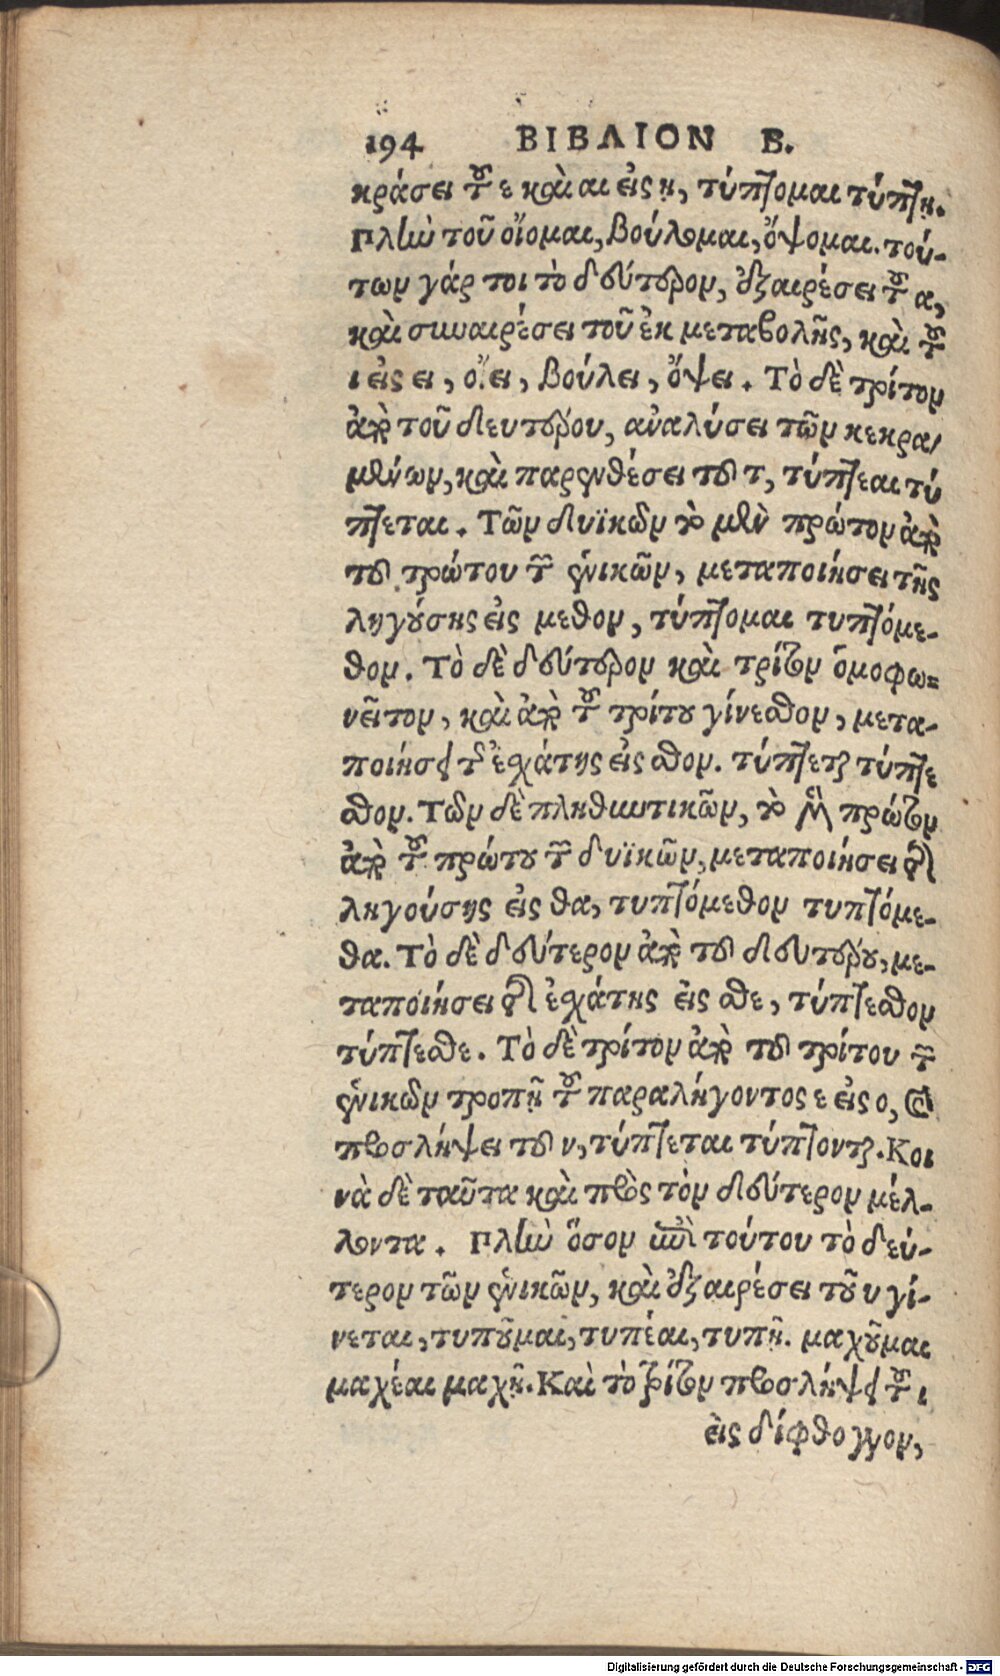 194 ΒΙΒΛΙΟΝ Β.
κράσει τοῦ ε καὶ αι εἰς ῃ, τύπτομαι τύπτῃ.
Πλὴν τοῦ οἴομαι, βούλομαι, ὄψομαι. τού-
των γάρ τοι τὸ δεύτερον, ἐξαιρέσει τοῦ α,
καὶ συναιρέσει τοῦ ἐκ μεταβολῆς, καὶ τοῦ
ι εἰς ει, οἴει, βούλει, ὄψει. Τὸ δὲ τρίτον
ἀπὸ τοῦ δευτέρου, ἀναλύσει τῶν κεκρα/
μένων, καὶ παρενθέσει τοῦ τ, τύπτεαι τύ
πτεται. Τῶν δυϊκῶν τὸ μὲν πρώτον ἀπὸ
τοῦ πρώτου τῶν ἑνικῶν, μεταποιήσει τῆς
ληγούσης εἰς μεθον, τύπτομαι τυπτόμε-
θον. Τὸ δὲ δεύτερον καὶ τρίτον ὁμοφω=
νεῖτον, καὶ ἀπὸ τοῦ τρίτου γίνεσθον, μετα-
ποιήσει τῆς ἐσχάτης εἰς σθον. τύπτεται τύπτε
σθον. Τῶν δὲ πληθυντικῶν, τὸ μὲν πρώτον
ἀπὸ τοῦ πρώτου τῶν δυϊκῶν, μεταποιήσει τῆς
ληγούσης εἰς θα, τυπτόμεθον τυπτόμε-
θα. Τὸ δὲ δεύτερον ἀπὸ τοῦ δευτέρου, με-
ταποιήσει τῆς ἐσχάτης εἰς σθε, τύπτεσθον
τύπτεσθε. Τὸ δὲ τρίτον ἀπὸ τοῦ τρίτου τῶν
ἑνικῶν τροπῇ τοῦ παραλήγοντος ε εἰς ο, καὶ
προσλήψει τοῦ ν, τύπτεται τύπτονται. Κοι
νὰ δὲ ταῦτα καὶ πρὸς τὸν δεύτερον μέλ-
λοντα. Πλὴν ὅσον ἐπὶ τούτου τὸ δεύ-
τερον τῶν ἑνικῶν, καὶ ἐξαιρέσει τοῦ υ γί-
νεται, τυποῦμαι, τυπέαι, τυπῇ. μαχοῦμαι
μαχέαι μαχῇ. Καὶ τὸ τρίτον προσλήψει τοῦ ι
εἰς δίφθογγον,
Digitalisierung gefördert durch die Deutsche Forschungsgemeinschaft - DFG